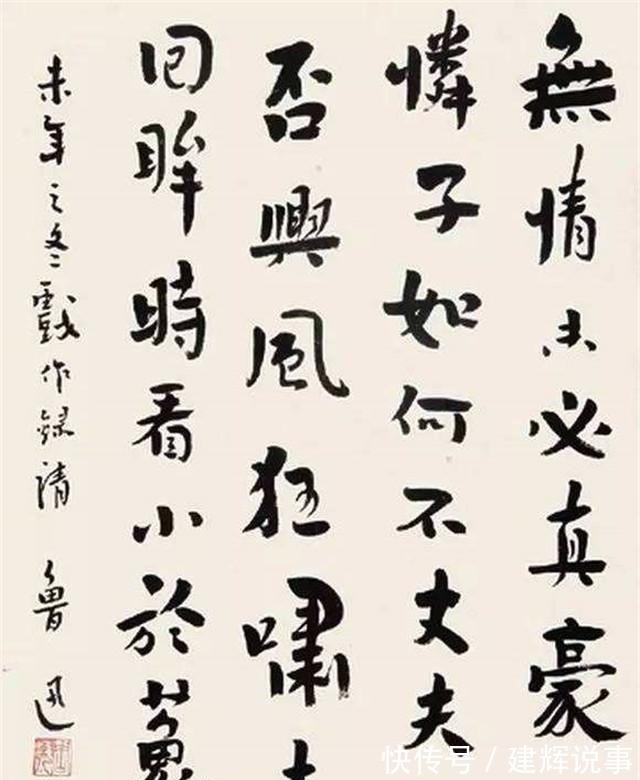 無情未必真豪
憐子如何不丈夫
否興風狂嘯
回眸時看小於菟
未年之冬戲作錄請 魯迅
快传号 / 建辉说事